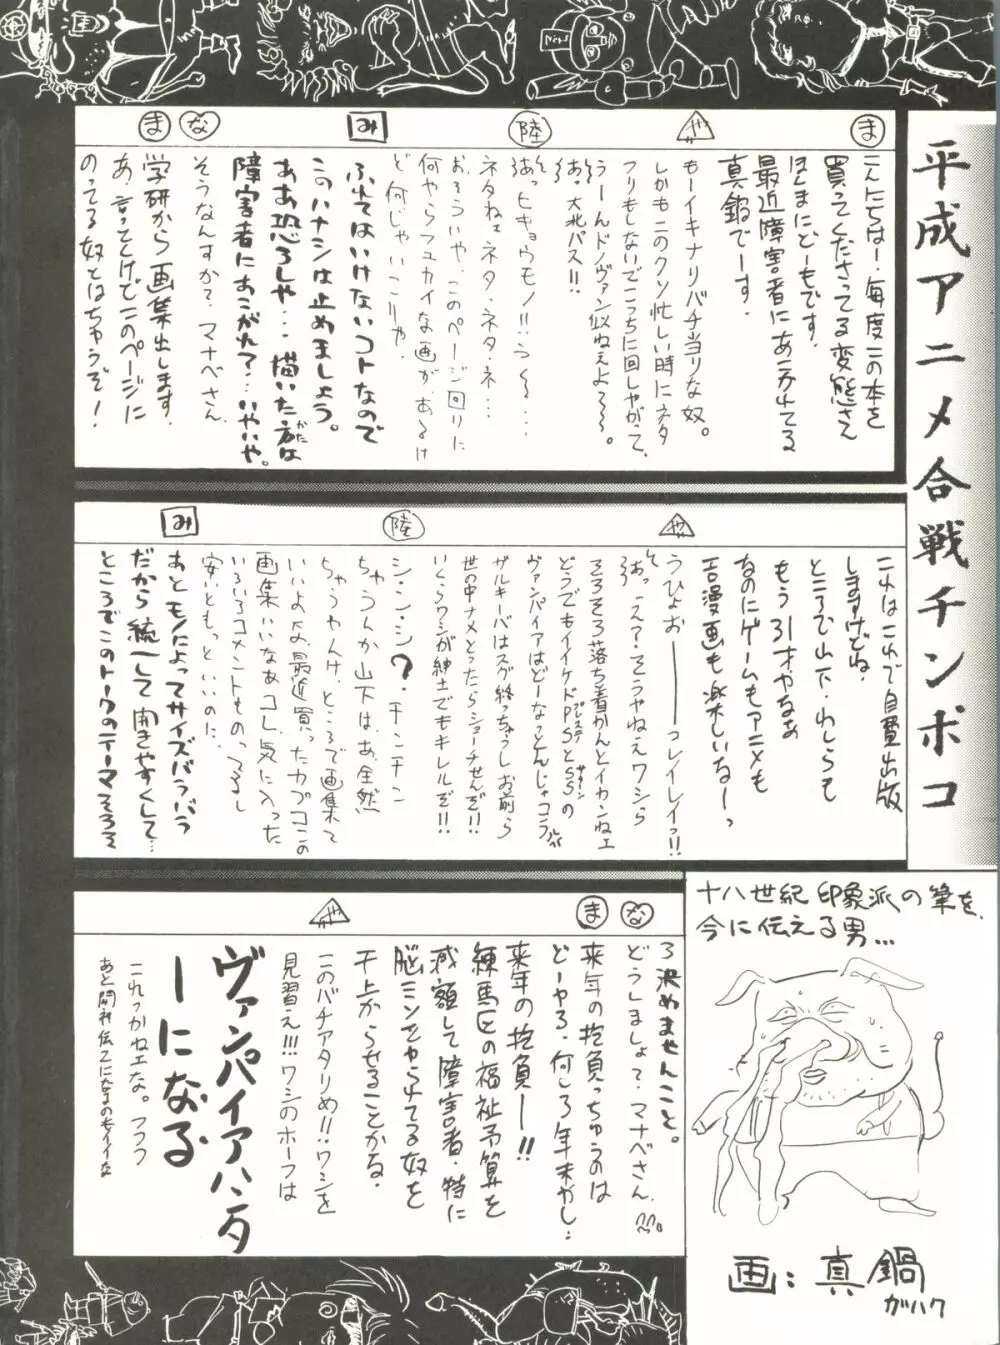 平成アニメ合戦チンポコ
ま
こんにちはー・毎度この本を
買ってくださってる変態さん
ほんまにどーもです。
最近障害者にあこがれてる
真鍋でーす。
や
もーイキナリバチ当りな奴。
しかもこのクソ忙しい時にネタ
フリもしないでこっちに回しやがって、
うーんドノヴァン似ねぇよろ〜。
あっ大北パス!!
陸
あっヒキョウモノ!!う〜〜…
ネタねェネタ・ネタ・ネ…
おろういや、このページ回りに
何やらフユカイな画があるけ
ど何じゃいこりゃ。
み
ふれてはいけないコトなので
このハナシは止めましょう。
ああ恐ろしや…描いた方は
かた
障害者にあこがれて?…いやいや。
な
そうなんすか?マナベさん
ま
学研から画集出します。
あ、言っとくけどこのページに
のってる奴とはちゃうぞ!
これはこれで自費出版
しますけどね。
ところで山下・わしらも
もう31才やなぁ
なのにゲームもアニメも
エロ漫画も楽しいなーっ
や
うひょおーーーっレイレイっ!!
あっえ?そうやねえワシら
そろそろ落ち着かんとイカンねェ
どうでもイイケドPSとSSの
プレステ
サターン
ヴァンパイアはどーなっとんじゃコラ
ザルキーバはスグ終っちゃうしお前ら
世の中ナメとったらショーチせんぞ!!
いくらワシが紳士でもキレルぞ!!
陸
シ・ン・シ?、チンチン
ちゃうんか山下は、あ、全然
ちゃうやんけ、ところで画集て
いいよな、最近買ったカプコンの
画集いいなぁコレ、気に入った
いろいろコメントものってるし
安いともっといいのに、
み
あとモノによってサイズバラバラ
だから統一して開きやすくして…
ところでこのトークのテーマそろそ
ろ決めませんこと。
な
どうしましょ?マナベさん
ま
来年の抱負っちゅうのは
どーやろ、何しろ年末やし…
来年の抱負ー!!
練馬区の福祉予算を
減額して障害者・特に
脳ミソをやられてる奴を
干上がらせることかな・
や
このバチアタリめ!!ワシを
見習え!!!ワシのホーフは
ヴァンパイアハンタ
ーになる
これっかねェな。フフフ
十八世紀印象派の筆を、
今に伝える男…
画：真鍋
ガハク